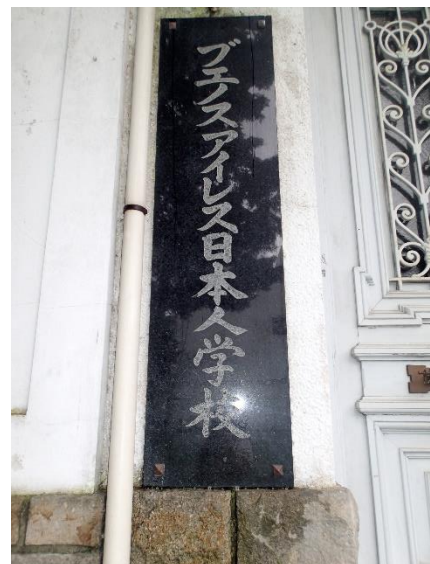 ブエノスアイレス日本人学校